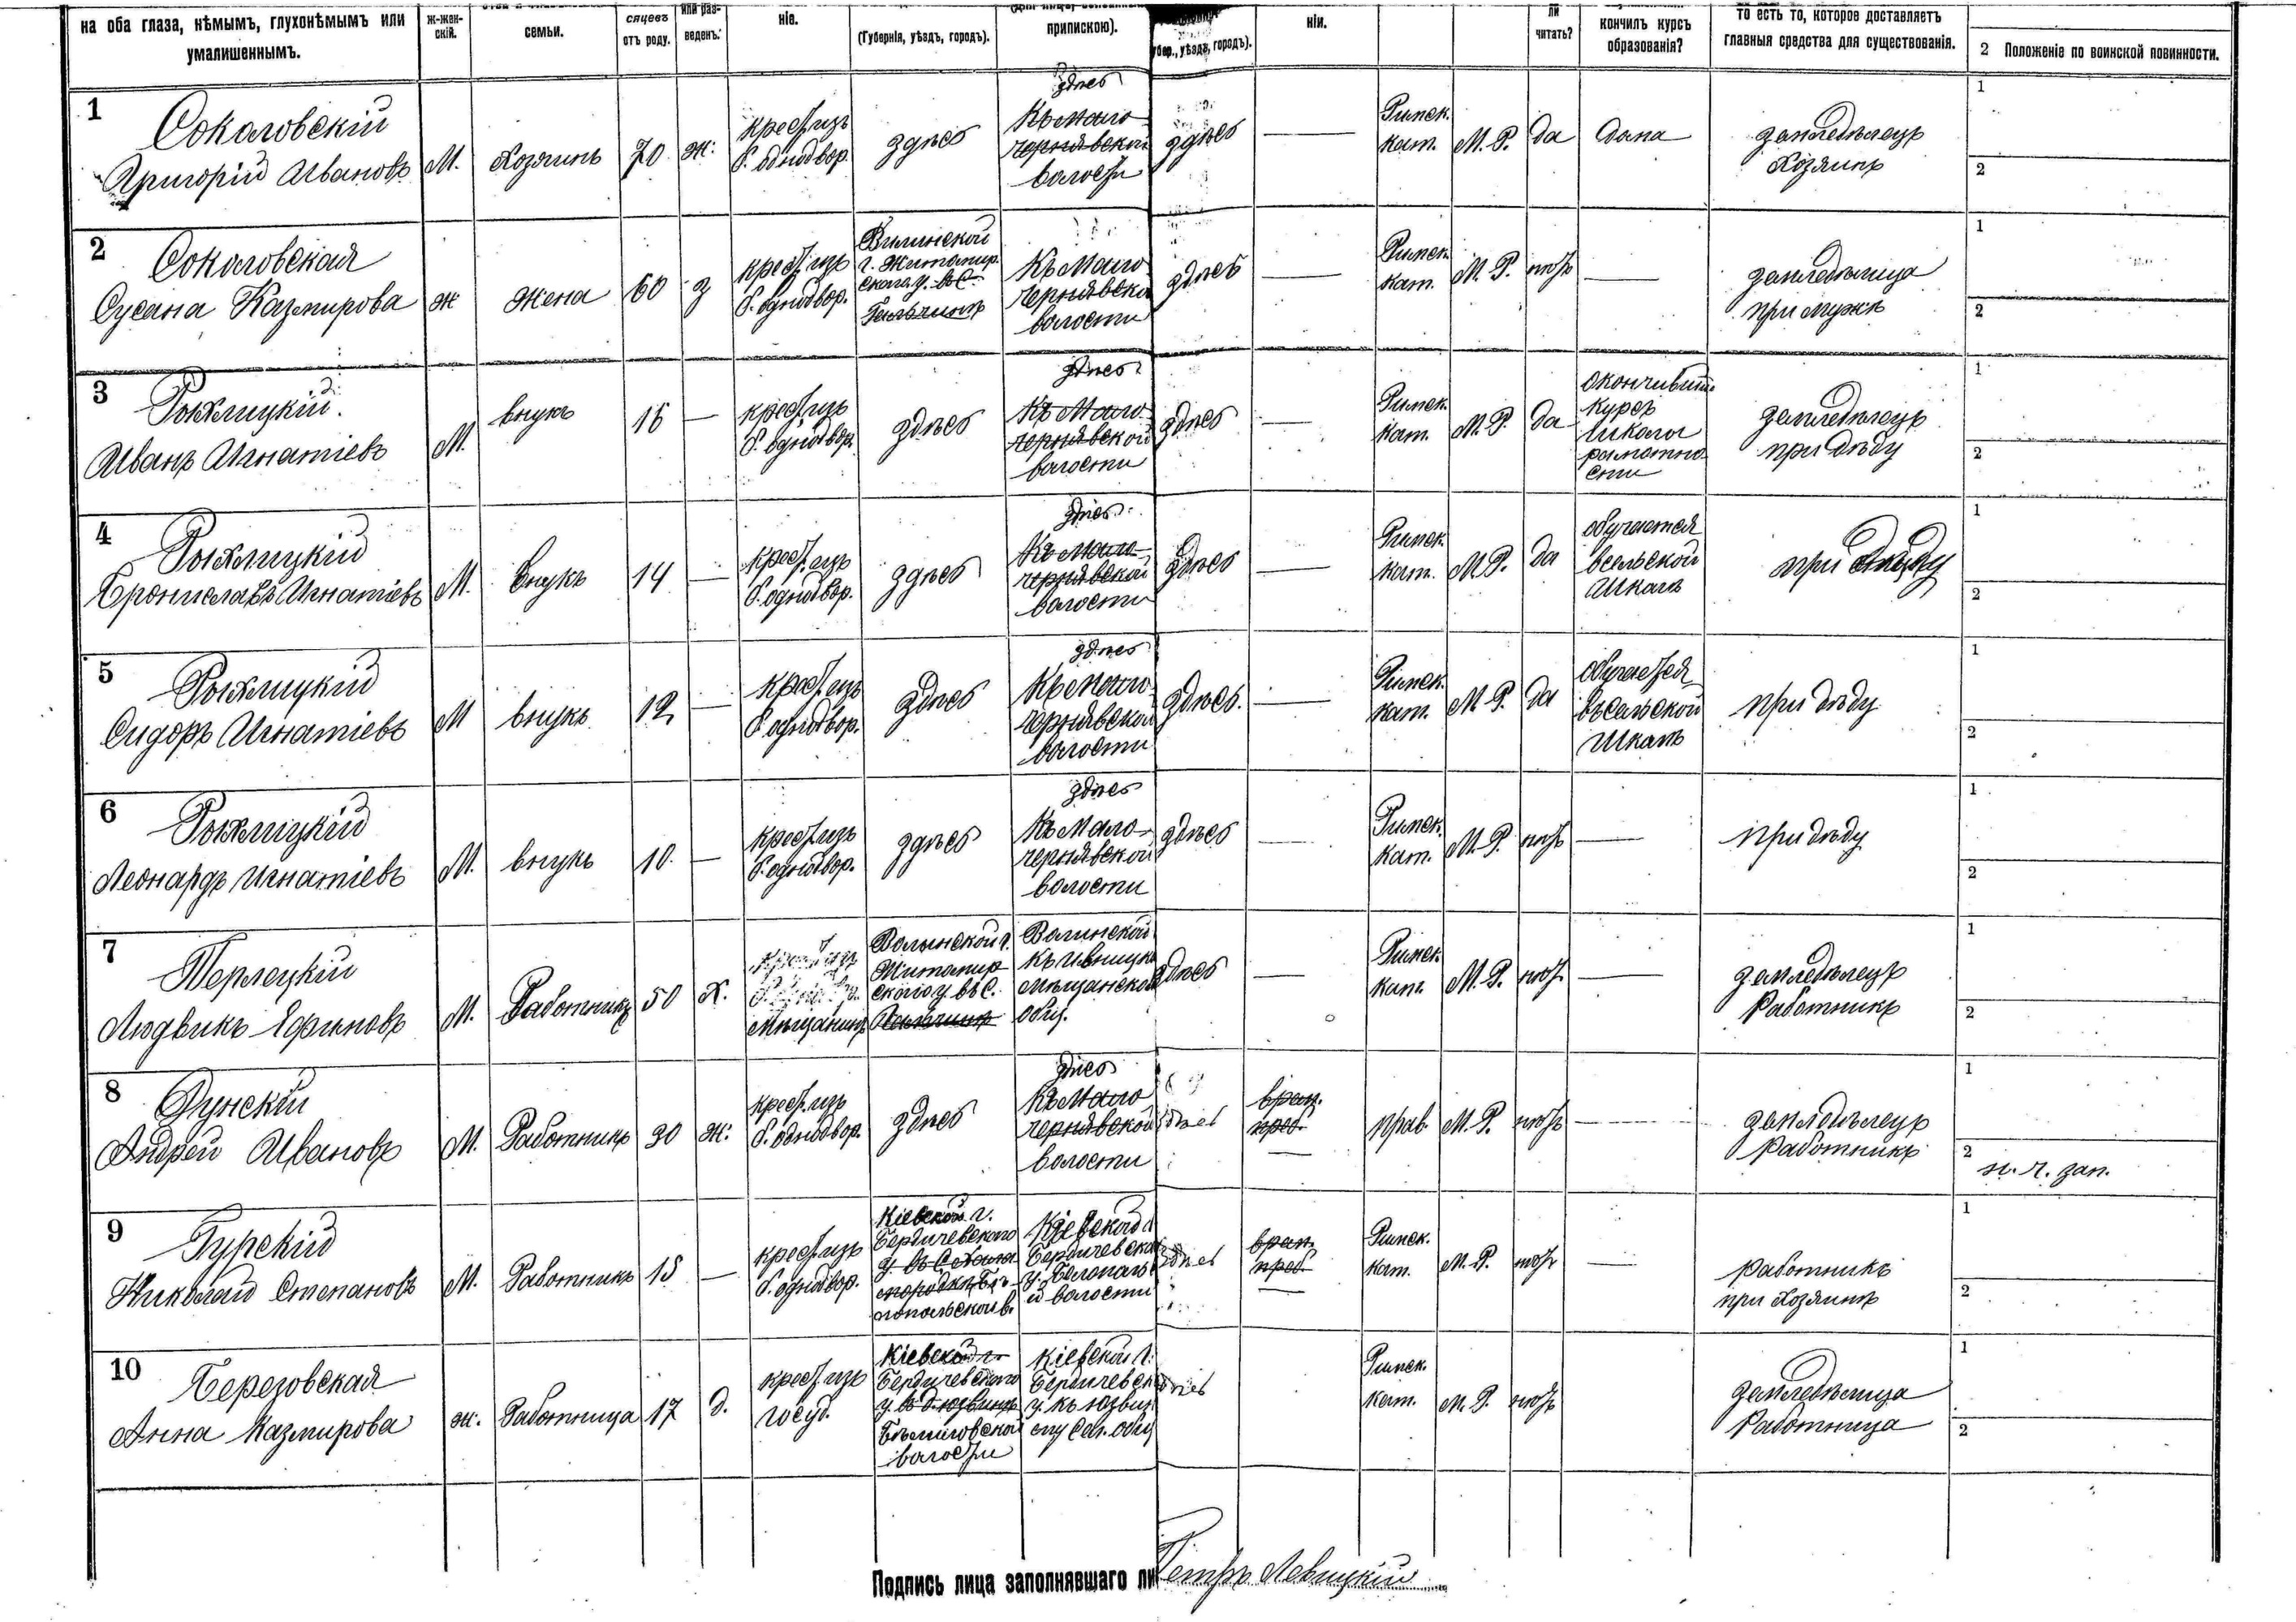 на оба глаза, нѣмымъ, глухонѣмымъ или
умалишеннымъ.
ж-жен-
скій.
семьи.
сяцевъ
отъ роду.
или раз-
веденъ.
ніе.
(Губернія, уѣздъ, городъ).
припискою).
губер., уѣздъ, городъ).
ніи.
ли
читать?
кончилъ курсъ
образованія?
то есть то, которое доставляетъ
главныя средства для существованія.
2 Положеніе по воинской повинности.
1
Соколовскій
Григорій Ивановъ
М.
Хозяинъ
70
ж.
крест. изъ
б. однодвор.
здѣсь
здѣсь
Къ Мало
чернявской
волости
здѣсь
—
Римск.
кат.
М. Р.
да
дома
земледѣлецъ
Хозяинъ
1
2
2
Соколовская
Сусана Казмирова
ж
жена
60
з
крест. изъ
б. однодвор.
Волынской
г. Житомир
скаго у. въ С.
Къ Мало
чернявской
волости
здѣсь
—
Римск.
кат.
М. Р.
нѣтъ
—
земледѣлица
при мужѣ
1
2
3
Рыхлицкій
Иванъ Игнатіевъ
М.
внукъ
16
—
крест. изъ
б. однодвор.
здѣсь
здѣсь
Къ Мало
чернявской
волости
здѣсь
—
Римск.
кат.
М. Р.
да
окончивши
курсъ
школы
грамотно
сти
земледѣлецъ
при дѣду
1
2
4
Рыхлицкій
Брониславъ Игнатіевъ
М.
внукъ
14
—
крест. изъ
б. однодвор.
здѣсь
здѣсь
Къ Мало
чернявской
волости
здѣсь
—
Римск.
кат.
М. Р.
да
обучается
всельской
школѣ
при дѣду
1
2
5
Рыхлицкій
Сидоръ Игнатіевъ
М
внукъ
12
—
крест. изъ
б. однодвор.
здѣсь
здѣсь
Къ Мало
чернявской
волости
здѣсь.
—
Римск.
кат.
М. Р.
да
обучается
въ сельской
школѣ
при дѣду
1
2
6
Рыхлицкій
Леонардъ Игнатіевъ
М.
внукъ
10.
—
крест. изъ
б. однодвор.
здѣсь
здѣсь
Къ Мало
чернявской
волости
здѣсь
—
Римск.
кат.
М. Р.
нѣтъ
—
при дѣду
1
2
7
Терлецкій
Людвикъ Ефимовъ
М.
Работникъ
50
Х.
мѣщанинъ
Волынской г.
Житомир
скаго у. въ С.
Волинской
къ Ивницко
мѣщанском
общ.
здѣсь
—
Римск.
кат.
М. Р.
нѣтъ
—
земледѣлецъ
Работникъ
1
2
8
Дунскій
Андрей Ивановъ
М.
Работникъ
30
ж.
крест. изъ
б. однодвор.
здѣсь
здѣсь
Къ Мало
чернявской
волости
здѣсь
врем.
преб.
—
прав.
М. Р.
нѣтъ
—
земледѣлецъ
работникъ
1
2
н. ч. зап.
9
Гурскій
Николай Степановъ
М.
Работникъ
15
—
крест. изъ
б. однодвор.
Кіевской г.
Бердичевского
Кіевской г
Бердичевско
и волости
здѣсь
врем.
преб.
—
Римск.
кат.
М. Р.
нѣтъ
—
работникъ
при Хозяинѣ
1
2
10
Березовская
Анна Казмирова
ж.
Работница
17
д.
крест. изъ
госуд.
Кіевской г.
Бердичевского
волости
Кіевской г.
Бердичевск
здѣсь
Римск.
кат.
М. Р.
нѣтъ
земледѣлица
Работница
1
2
Подпись лица заполнявшаго ли
Петръ Левицкій